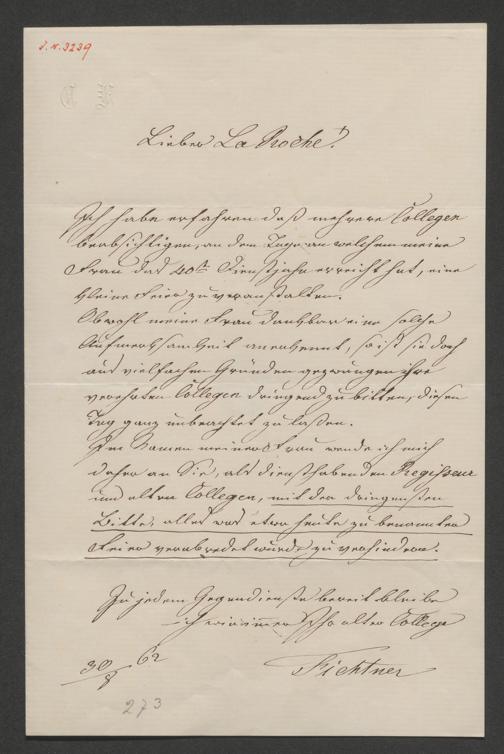 J.N. 3239
Lieber La Roche!
Ich habe erfahren daß mehrere Collegen
beabsichtigen, an dem Tage an welchem meine
Frau das 40te Dienstjahr erreicht hat, eine
kleine Feier zu veranstalten.
Obwohl meine Frau dankbar eine solche
Aufmerksamkeit anerkennt, so ist sie doch
aus vielfachen Gründen gezwungen ihre
verehrten Collegen dringend zu bitten, diesen
Tag ganz unbeachtet zu laßen.
Im Namen meiner Frau wende ich mich
daher an Sie, als diensthabenden Regisseur
und alten Collegen, mit der dringensten
Bitte, alles was etwa heute zu benannter
Feier verabredet wurde zu verhindern.
Zu jedem Gegendienste bereit bleibe
ich wie immer Ihr alter College
30/8 62
Fichtner
273